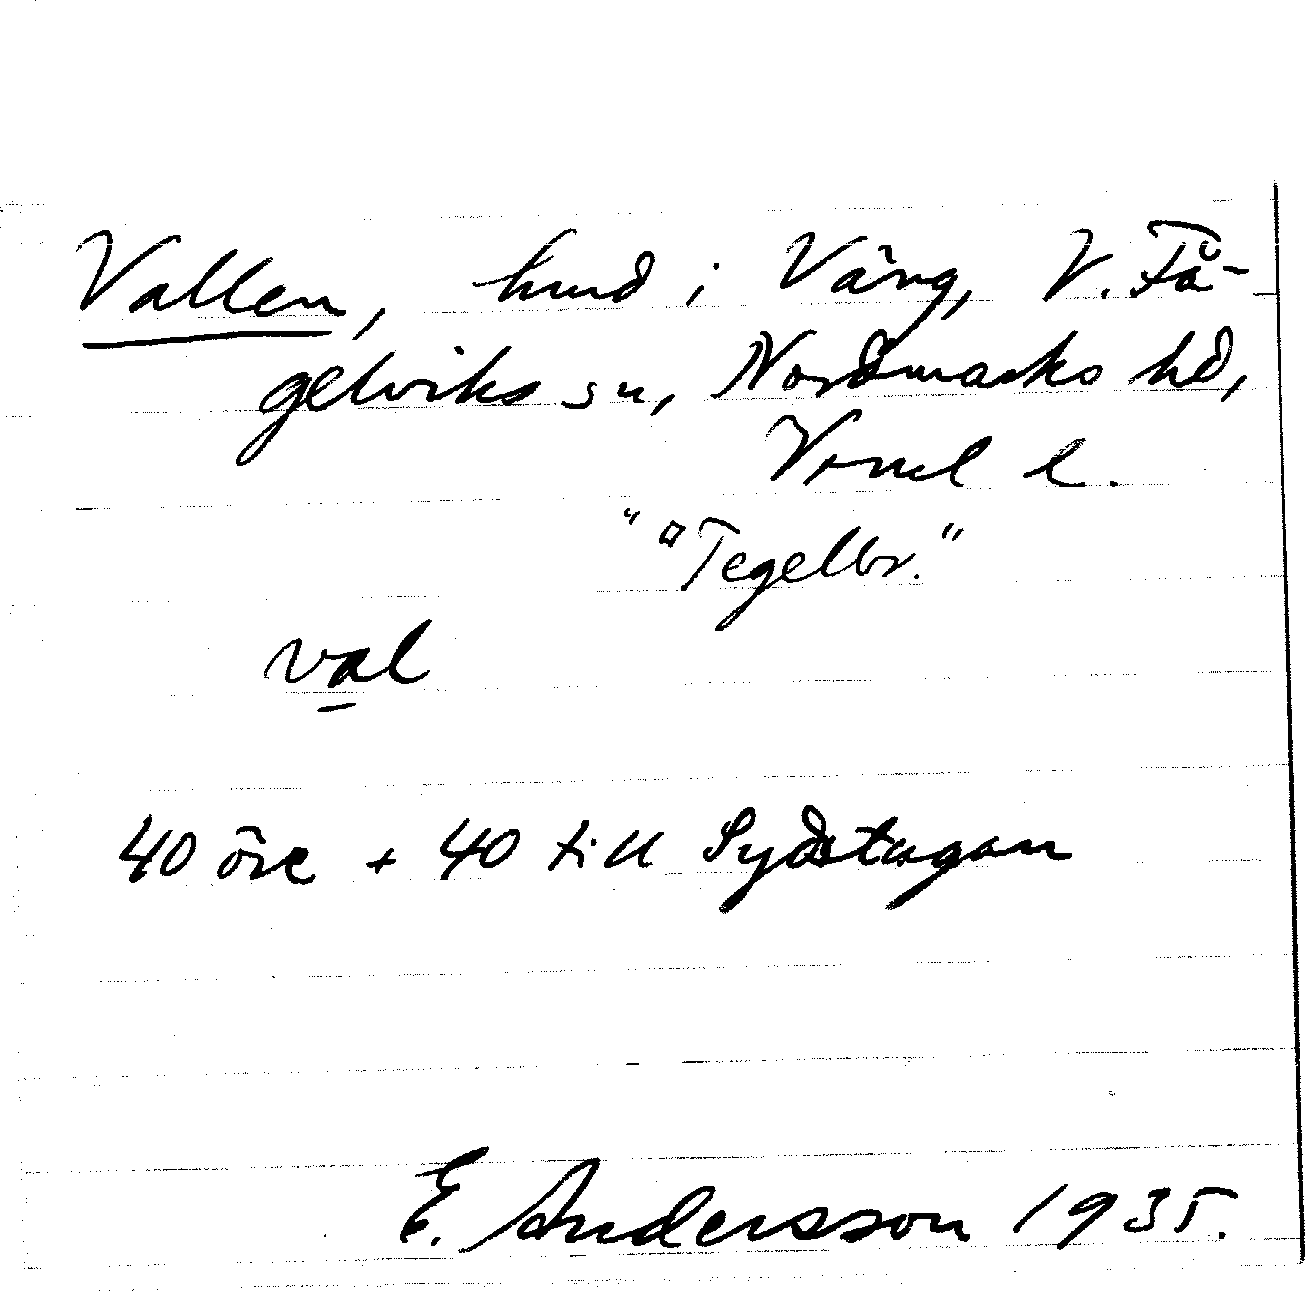 Vallen, hmd i Väng, V. Få-
gelviks sn, Nordmarks hd,
Vrml l.
" ¤Tegelbr."
val
40 öre + 40 till Sydstugan
E. Andersson 1935.